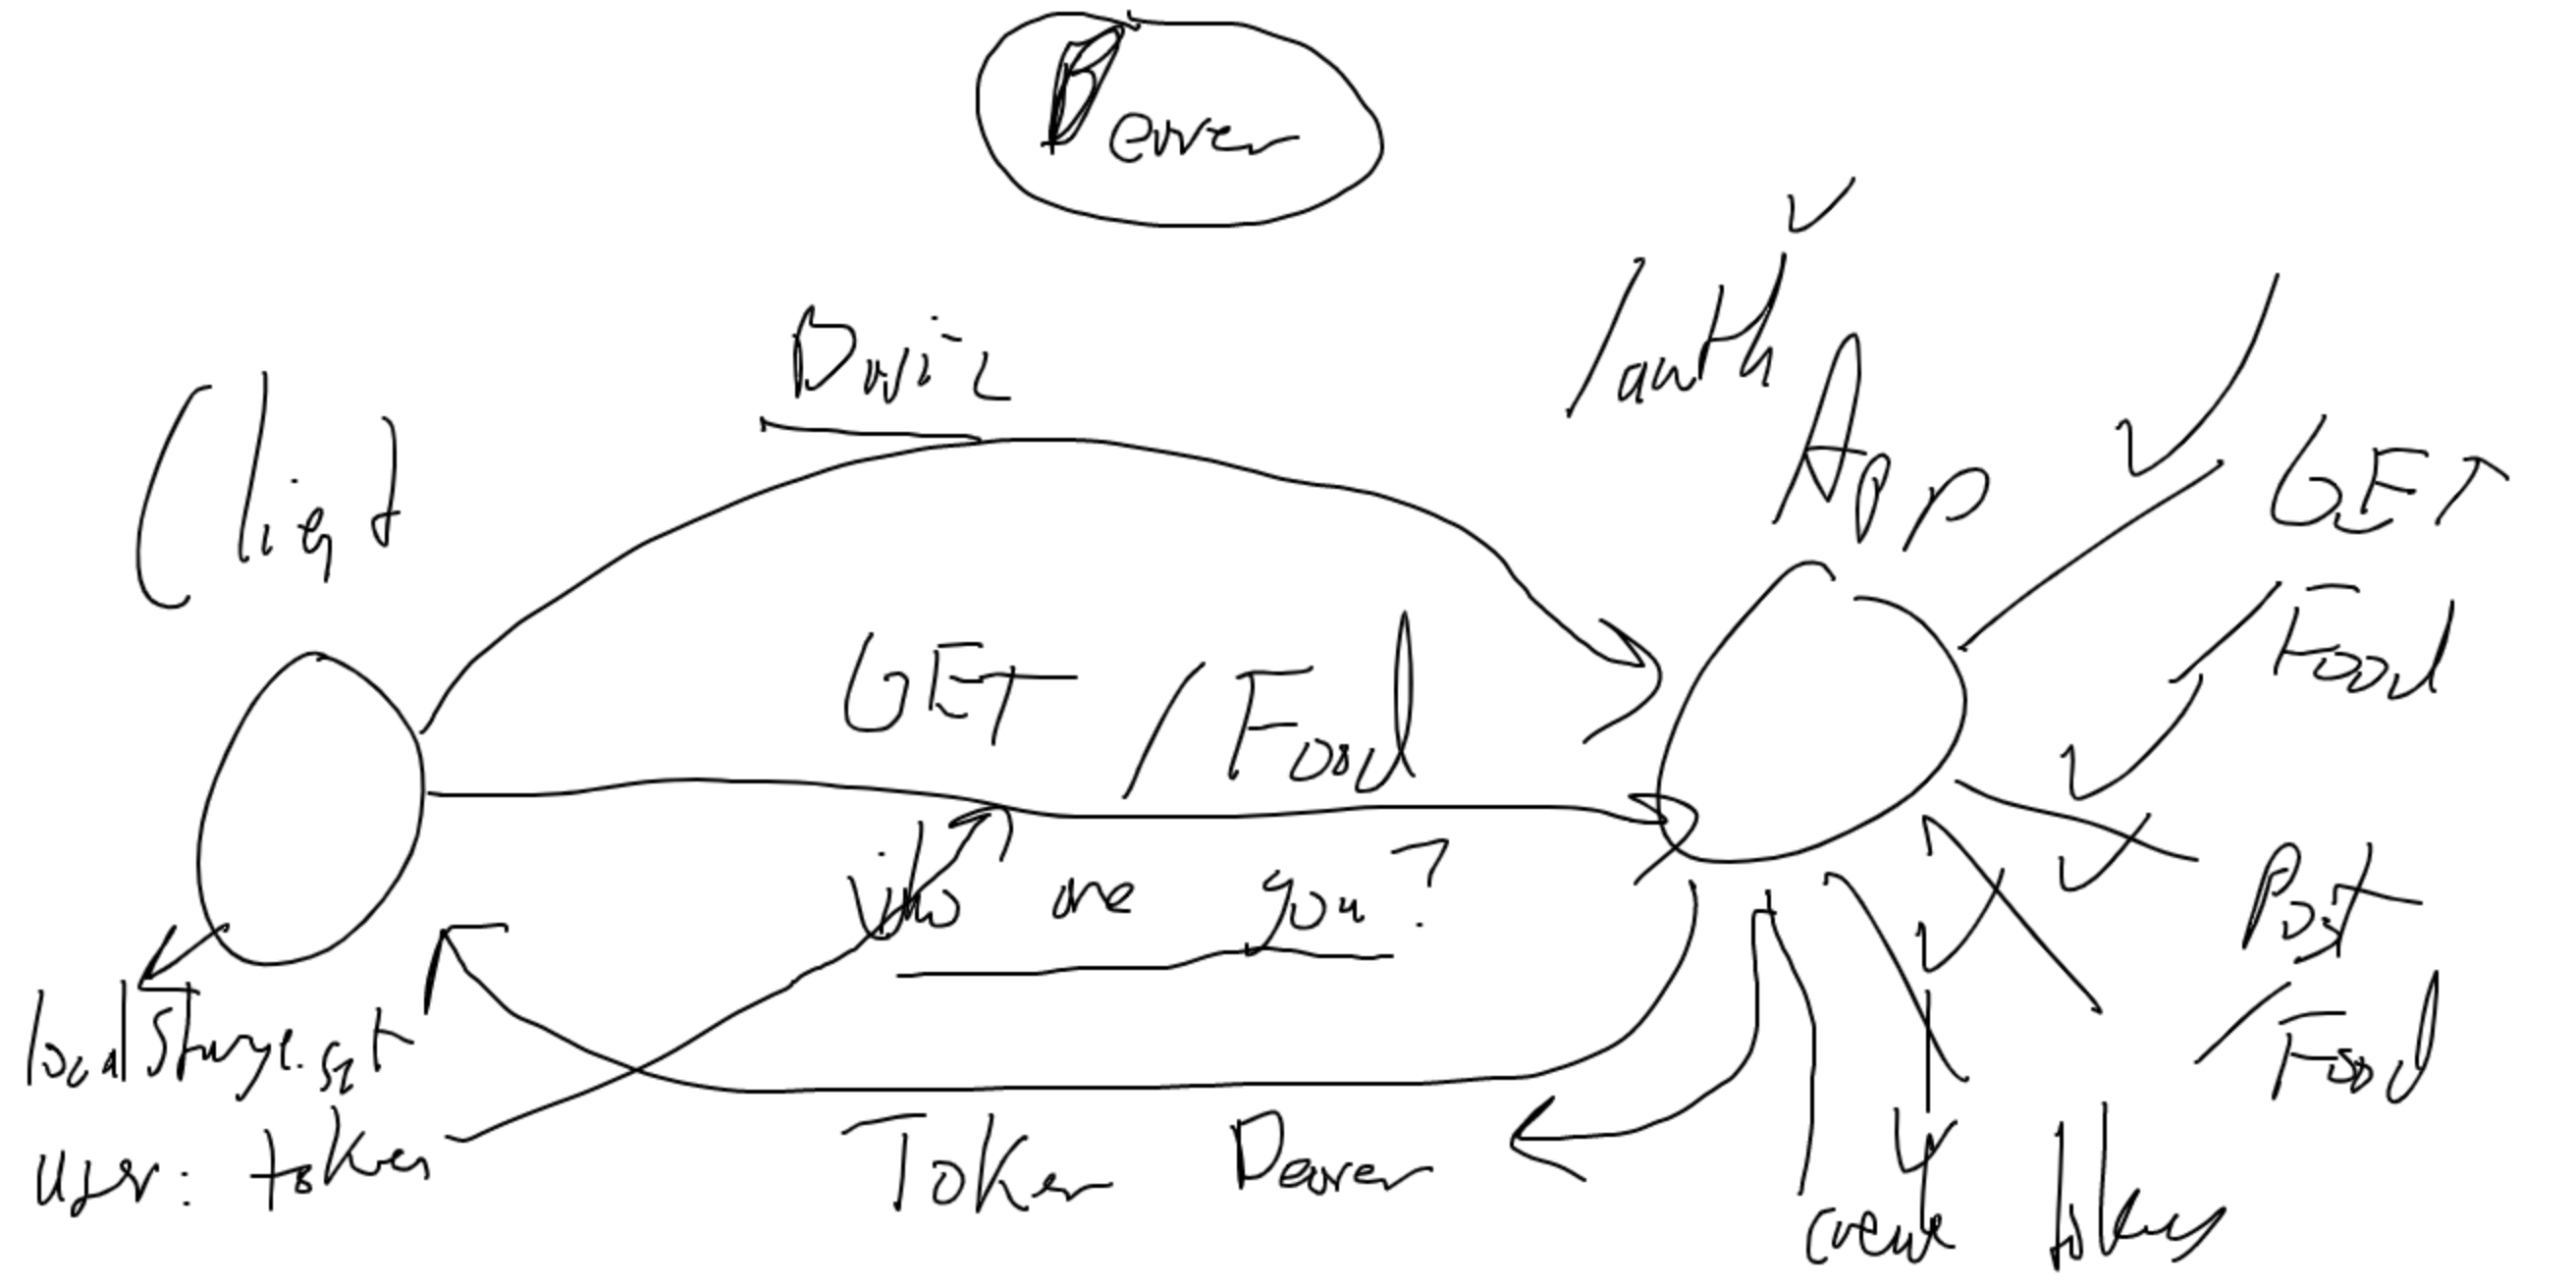 Bearer
/auth
Basic
Client
App
GET
/Food
GET /Food
who are you?
Post
/Food
localStorage.set
user: token
Token Bearer
create tokens